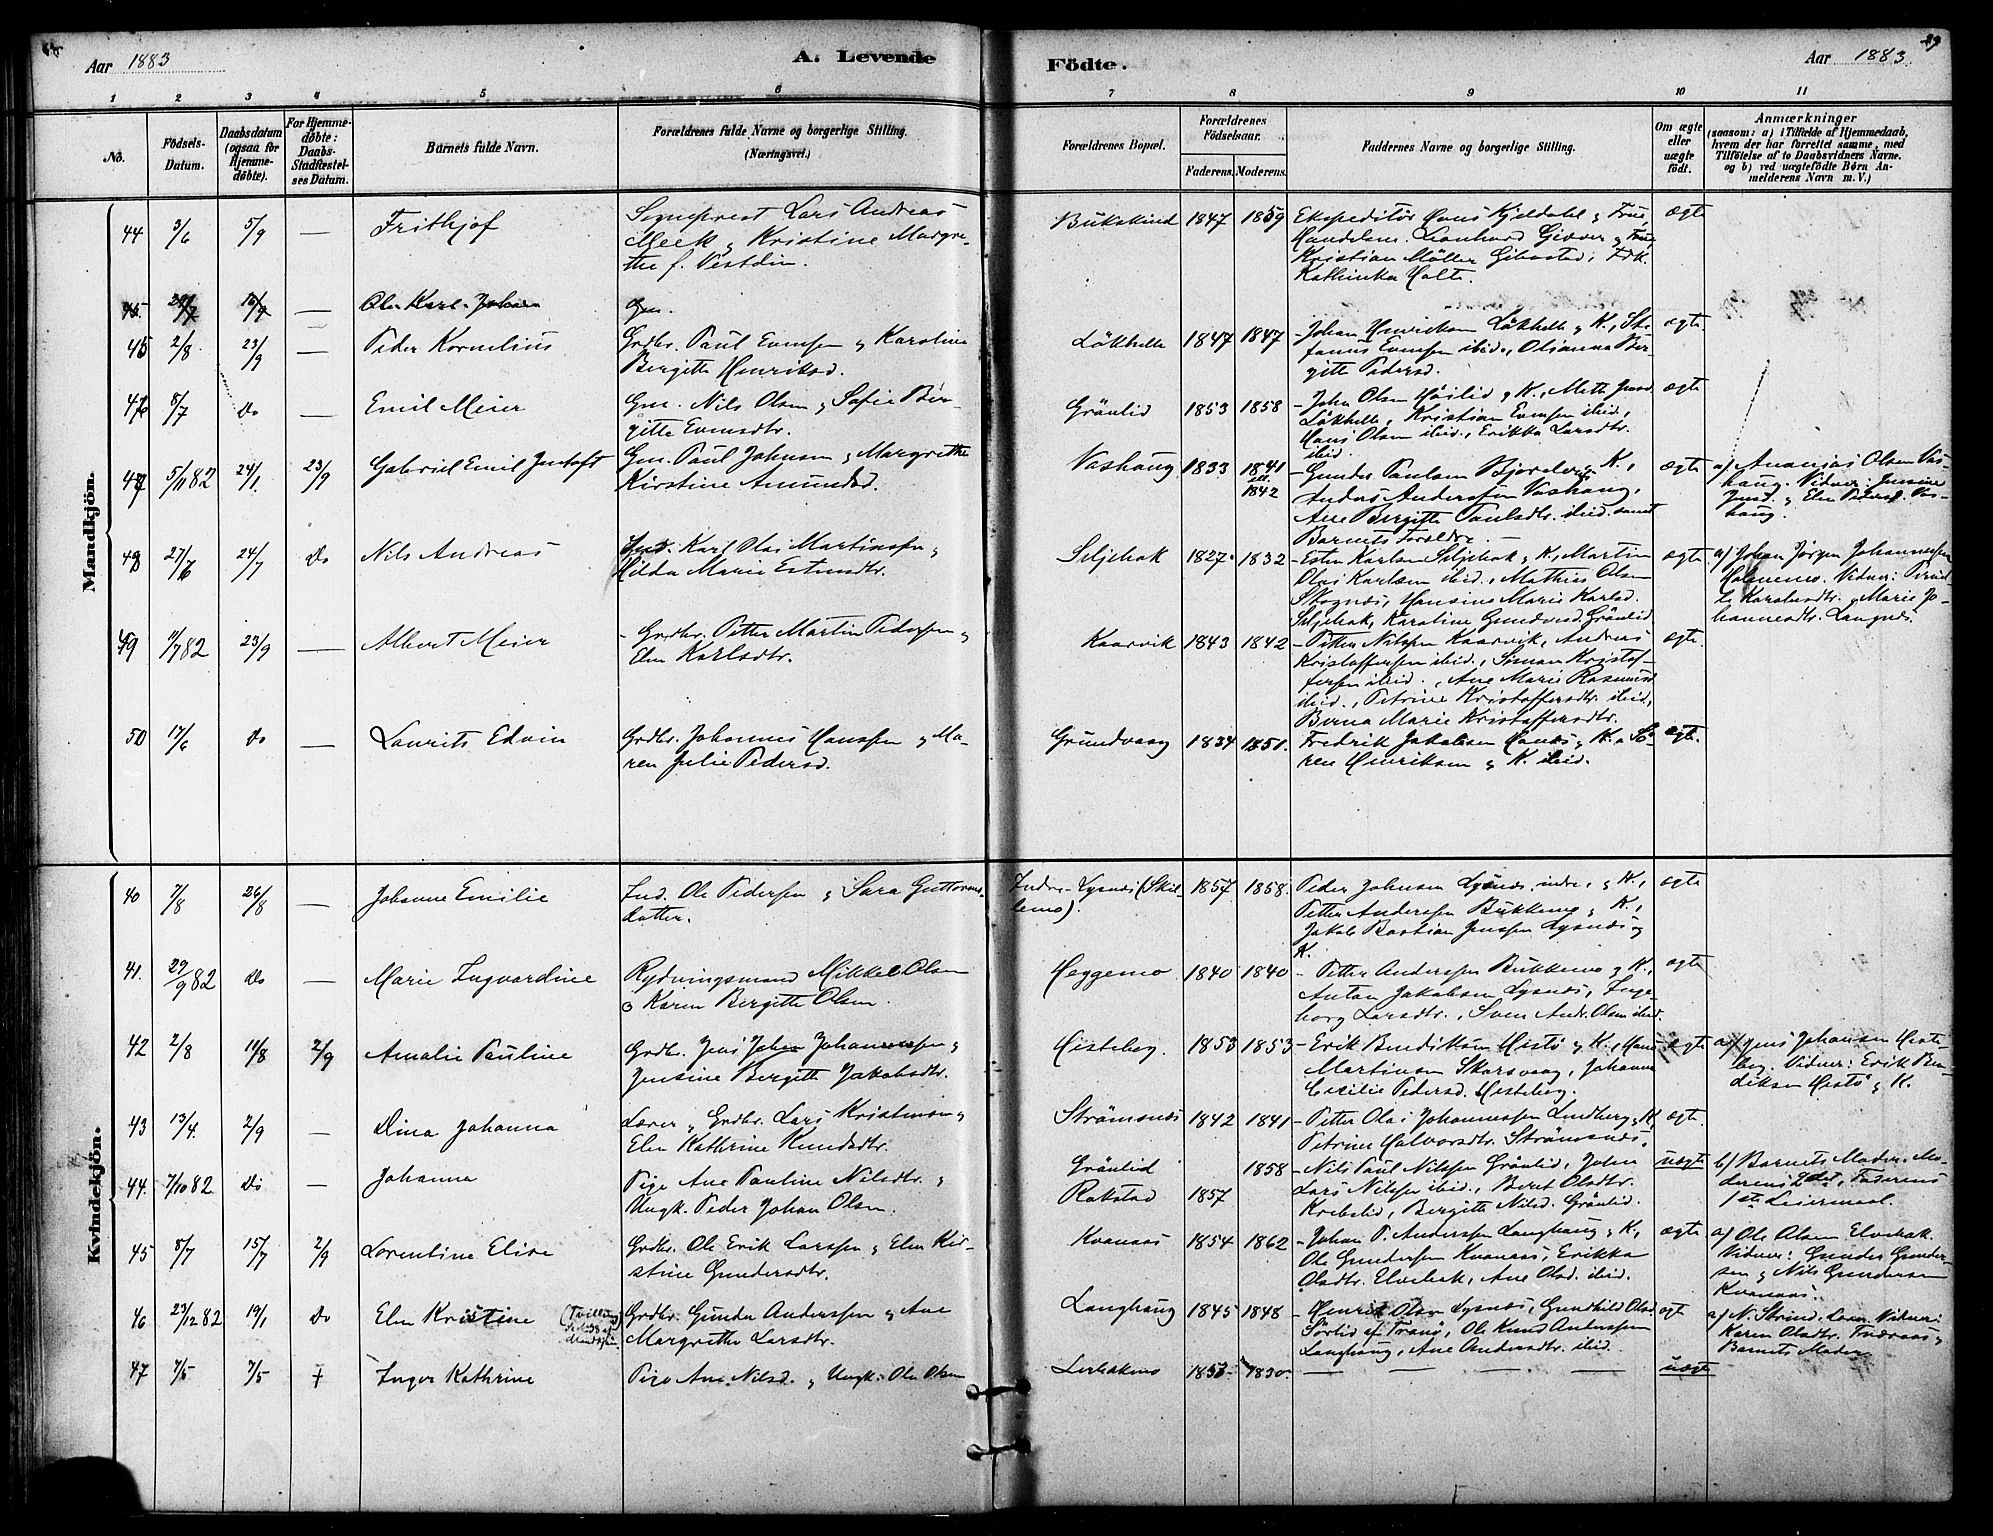 Aar 1883
A. Levende
Födte.
Aar 1883.
89
1 2 3 4 5 6 7 8 9 10 11
No.
Födsels-Datum.
Daabsdatum (ogsaa for Hjemmedøbte).
For Hjemmedøbte: Daabs-Stadfæstelses Datum.
Barnets fulde Navn.
Forældrenes fulde Navne og borgerlige Stilling. (Næringsvei.)
Forældrenes Bopæl.
Forældrenes Födselsaar.
Faderens. Moderens.
Faddernes Navne og borgerlige Stilling.
Om ægte eller uægte født.
Anmærkninger (saasom: a) i Tilfælde af Hjemmedaab, hvem der har forrettet samme, med Tilføielse af to Daabsvidners Navne. og b) ved uægtefödte Börn Anmelderens Navn m. V.)
Mandkjön.
44 3/6 5/9 — Frithjof
Sogneprest Lars Andreas
Meek & Kristine Margre-
the f. Vestdin.
Bukskind 1847 1859
Ekspeditör Hans Kjeldahl & Frue,
Handelsm. Leonhard Giæver & Frue
Kristian Möller Gibostad, Frk.
Kathinka Holte.
ægte
45. 29/7 16/9 — Ole Karl Johan Gm.
45 2/8 23/9 — Peder Kornelius
Grdbr. Paul Evensen & Karoline
Birgitte Henriksd.
Lökhelle 1847 1847
Johan Henriksen Lökhelle & K., Ste-
fanus Evensen ibid., Olianna Bir-
gitte Pedersd.
ægte
46 8/7 Do — Emil Meier
Gm. Nils Olsen & Sofie Bir-
gitte Evensdtr.
Grönlid 1853 1858
John Olsen Höilid & K., Mette Jensd.
Lökhelle, Kristian Evensen ibid,
Hans Olsen ibid., Erikka Larsdtr.
ibid.
ægte
47 5/11 82 24/1. 23/9 Gabriel Emil Jentoft
Gm. Paul Johnsen & Margrethe
Kirstine Amundsd.
Vashaug 1833 1841 ell. 1842
Gunder Paulsen Bjorelvs & K.,
Anders Andersen Vashaug,
Ane Birgitte Paulsdtr. ibid. samt
Barnets Foreldre. —
ægte
a) Ananias Olsen Vas-
haug. Vidner: Jensine
Jensd. & Elen Pedersd. Vas-
haug.
48 27/6 24/7 Do Nils Andreas
Ind. Karl Olai Martinsen &
Hilda Marie Estensdtr.
Seljehak 1827. 1832
Esten Karlsen Seljehak & K., Martin
Olai Karlsen ibid., Mathias Olsen
Skognæs, Hansine Marie Karlsd.
Seljehak, Karoline Gundersd. Grönlid
ægte
a) Johan Jörgen Johannessen
Holmemo. Vidner:
Karolusdtr. & Marie Jo-
hannesdtr. Langnæs.
49 1/7 82 23/9 — Albert Meier
Grdbr. Petter Martin Pedersen &
Elen Karlsdtr.
Kaarvik 1843 1842
Petter Nilssen Kaarvik, Andreas
Kristoffersen ibid., Simon Kristof-
fersen ibid., Ane Marie Rasmusd.
ibid., Petrine Kristoffersdtr. ibid,
Berna Marie Kristoffersdtr.
ægte.
50 17/6 Do — Laurits Edvin
Grdbr. Johannes Hanssen & Ma-
ren Julie Pedersd.
Grundvaag 1834 1851.
Fredrik Jakobsen Hanæs & K. Sö-
ren Henriksen & K. ibid.
ægte.
Kvindekjön.
40 7/8 26/8 — Johanne Emilie
Ind. Ole Pedersen & Sara Guttorms-
datter.
Indre-Lysnæs (Skil-
lemo).
1857 1858.
Peder Johnsen Lysnæs indre, & K.,
Petter Anderssen Bukkemo & K.,
Jakob Bastian Jenssen Lysnæs &
K.
ægte
41. 29/9 82 Do — Marie Ingvardine
Rydningsmand Mikkel Olsen
& Karen Bergitte Olsen.
Heggemo 1840 1840
Petter Anderssen Bukkemo & K.,
Anton Jakobsen Lysnæs, Inge-
borg Larsdtr., Sven Andr. Olsen ibid.
ægte
42 2/8 11/8 2/9 Amalie Pauline
Grdbr. Jens Johan Johannessen &
Jensine Bergitte Jakobsdtr.
Hesteberg. 1853 1853
Erik Bendiksen Hestö & K., Hans
Martinsen Skarsvaag, Johanna
Cecilie Pedersd. Hesteberg.
ægte
a) Jens Johansen Heste-
berg. Vidner: Erik Ben-
diksen Hestö & K.
43 13/4. 2/9 — Dina Johanna
Lærer & Grdbr. Lars Kristensen &
Elen Kathrine Knudsdtr.
Strömsnæs 1842 1841
Petter Olai Johannessen Lindberg & K,
Petrine Halvorsdtr. Strömsnæs.
ægte.
44. 7/10 82 Do — Johanna
Pige Ane Pauline Nilsdtr. &
Ungk. Peder Johan Olsen.
Grönlid 1858
Rokstad 1857
Nils Paul Nilssen Grönlid, John
Lars Nilssen ibid., Beret Olsdtr.
Krebslid, Birgitte Nilsd. Grönlid.
uægte
b) Barnets Moder. Mo-
derens 2det, Faderens
1ste Leiermaal.
45 8/7 15/7 2/9 Lorentine Elise
Grdbr. Ole Erik Larssen & Elen Kir-
stine Gundersdtr.
Kvanaas 1854 1862
Johan P. Anderssen Langhaug & K,
Ole Gundersen Kvanaas, Erikka
Olsdtr. Elvebak, Ane Olsd. ibid.
ægte
a) Ole Olsen Elvebak.
Vidner: Gunder Gunder-
sen & Nils Gundersen
Kvanaas.
46 23/12 82 19/1 Do Elen Kristine (Tvilling
Grdbr. Gunder Anderssen & Ane
Margrethe Larsdtr.
Langhaug 1845 1848
Henrik Olsen Lysnæs, Gundhild Olsd.
Sörlid af Tranö, Ole Knud Anderssen
Langhaug, Ane Andersdtr. ibid.
ægt
a) N. Strind. Lærer. Vidner:
Karen Olsdtr. &
Barnets Moder
47 7/5 7/5 + Inger Kathrine
Pige Ane Nilsd. & Ungk. Ole Olsen
Leirbakmo 1853. 1850.
— — — — —
uægte